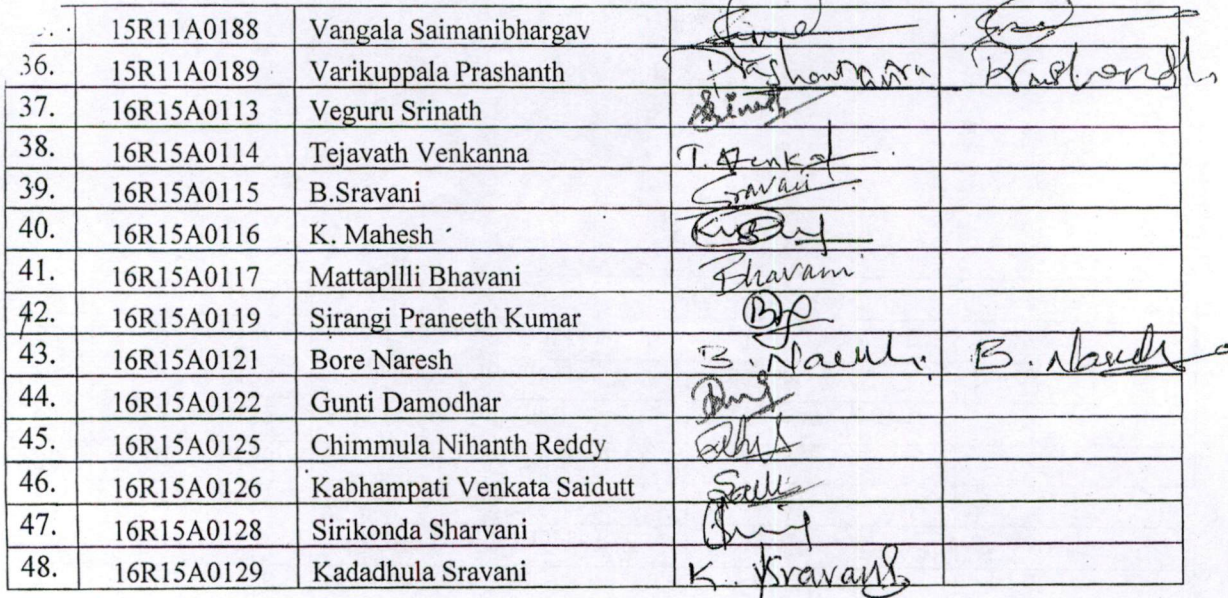 15R11A0188 Vangala Saimanibhargav
36. 15R11A0189 Varikuppala Prashanth
37. 16R15A0113 Veguru Srinath
38. 16R15A0114 Tejavath Venkanna T. Venkat
39. 16R15A0115 B.Sravani Sravani
40. 16R15A0116 K. Mahesh
41. 16R15A0117 Mattapllli Bhavani Bhavani
42. 16R15A0119 Sirangi Praneeth Kumar
43. 16R15A0121 Bore Naresh B. Naresh B. Naresh
44. 16R15A0122 Gunti Damodhar
45. 16R15A0125 Chimmula Nihanth Reddy
46. 16R15A0126 Kabhampati Venkata Saidutt
47. 16R15A0128 Sirikonda Sharvani
48. 16R15A0129 Kadadhula Sravani K. Sravani